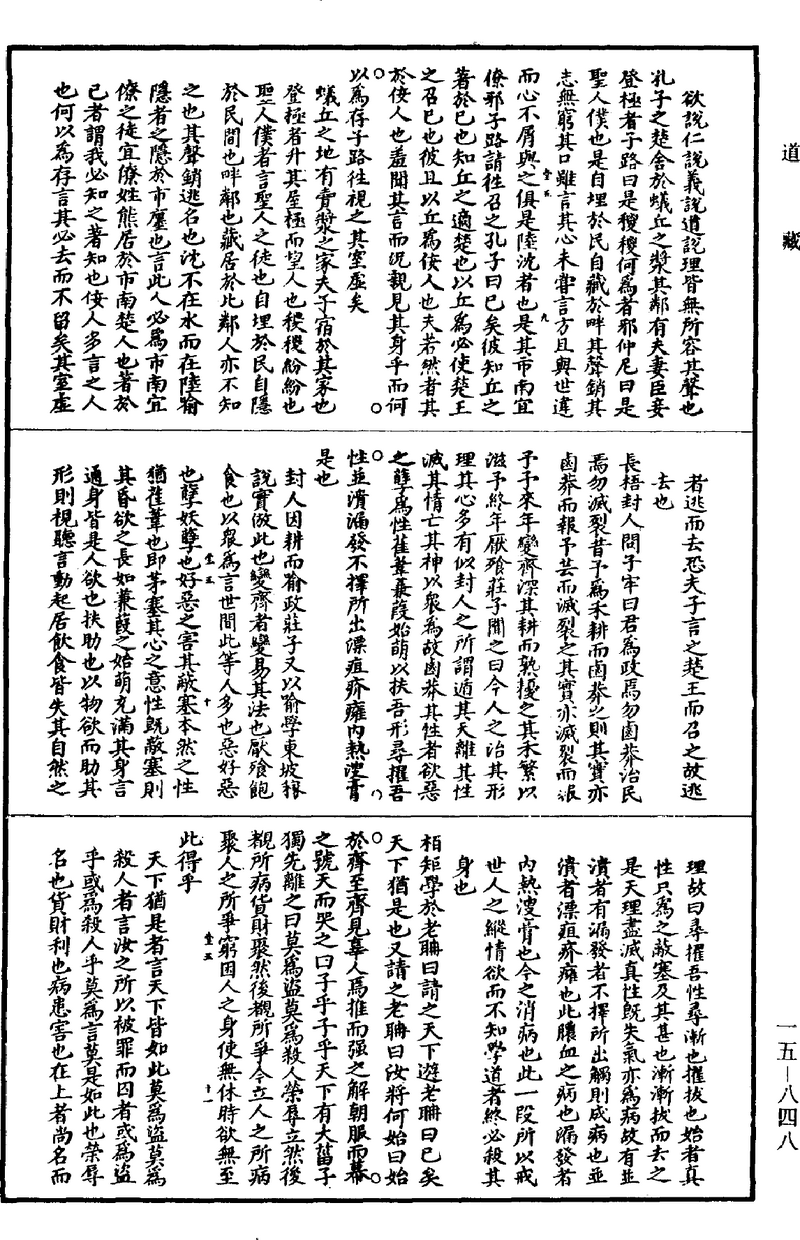 道藏
欲說仁說義說道說理皆無所容其聲也
孔子之楚舍於蟻丘之漿其鄰有夫妻臣妾
登極者子路曰是稯稯何為者邪仲尼曰是
聖人僕也是自埋於民自藏於畔其聲銷其
志無窮其口雖言其心未嘗言方且與世違
而心不屑與之俱是陸沈者也是其市南宜
僚邪子路請往召之孔子曰已矣彼知丘之
著於己也知丘之適楚也以丘為必使楚王
之召己也彼且以丘為佞人也夫若然者其
於佞人也羞聞其言而況親見其身乎而何
以為存子路往視之其室虛矣
蟻丘之地有賣漿之家夫子宿於其家也
登極者升其屋極而望人也稯稯紛紛也
聖人僕者言聖人之徒也自埋於民自隱
於民間也畔鄰也藏居於比鄰人亦不知
之也其聲銷逃名也沈不在水而在陸喻
隱者之隱於市廛也言此人必為市南宜
僚之徒宜僚姓熊居於市南楚人也著於
己者謂我必知之著知也佞人多言之人
也何以為存言其必去而不留矣其室虛
者逃而去恐夫子言之楚王而召之故逃
去也
長梧封人問子牢曰君為政焉勿鹵莽治民
焉勿滅裂昔予為禾耕而鹵莽之則其實亦
鹵莽而報予芸而滅裂之其實亦滅裂而報
予予來年變齊深其耕而熟耰之其禾繁以
滋予終年厭飱莊子聞之曰今人之治其形
理其心多有似封人之所謂遁其天離其性
滅其情亡其神以眾為故鹵莽其性者欲惡
之孽為性萑葦蒹葭始萌以扶吾形尋擢吾
性並潰漏發不擇所出漂疽疥癕內熱溲膏
是也
封人因耕而喻政莊子又以喻學東坡稼
說實倣此也變齊者變易其法也厭飱飽
食也以眾為言世間此等人多也惡好惡
也孽妖孽也好惡之害其蔽塞本然之性
猶萑葦也即茅塞其心之意性既蔽塞則
其昏欲之長如蒹葭之始萌充滿其身言
通身皆是人欲也扶助也以物欲而助其
形則視聽言動起居飲食皆失其自然之
理故曰尋擢吾性尋漸也擢拔也始者真
性只為之蔽塞及其甚也漸漸拔而去之
是天理盡滅真性既失氣亦為病故有並
潰者有漏發者不擇所出觸則成病也並
潰者漂疽疥癕也此膿血之病也漏發者
內熱溲膏也今之消病也此一段所以戒
世人之縱情欲而不知學道者終必殺其
身也
栢矩學於老聃曰請之天下遊老聃曰已矣
天下猶是也又請之老聃曰汝將何始曰始
於齊至齊見辜人焉推而强之解朝服而幕
之號天而哭之曰子乎子乎天下有大菑子
獨先離之曰莫為盜莫為殺人榮辱立然後
覩所病貨財聚然後覩所爭今立人之所病
聚人之所爭窮困人之身使無休時欲無至
此得乎
天下猶是者言天下皆如此莫為盜莫為
殺人者言汝之所以被罪而囚者或為盜
乎或為殺人乎莫為言莫是如此也榮辱
名也貨財利也病患害也在上者尚名而
一五－八四八